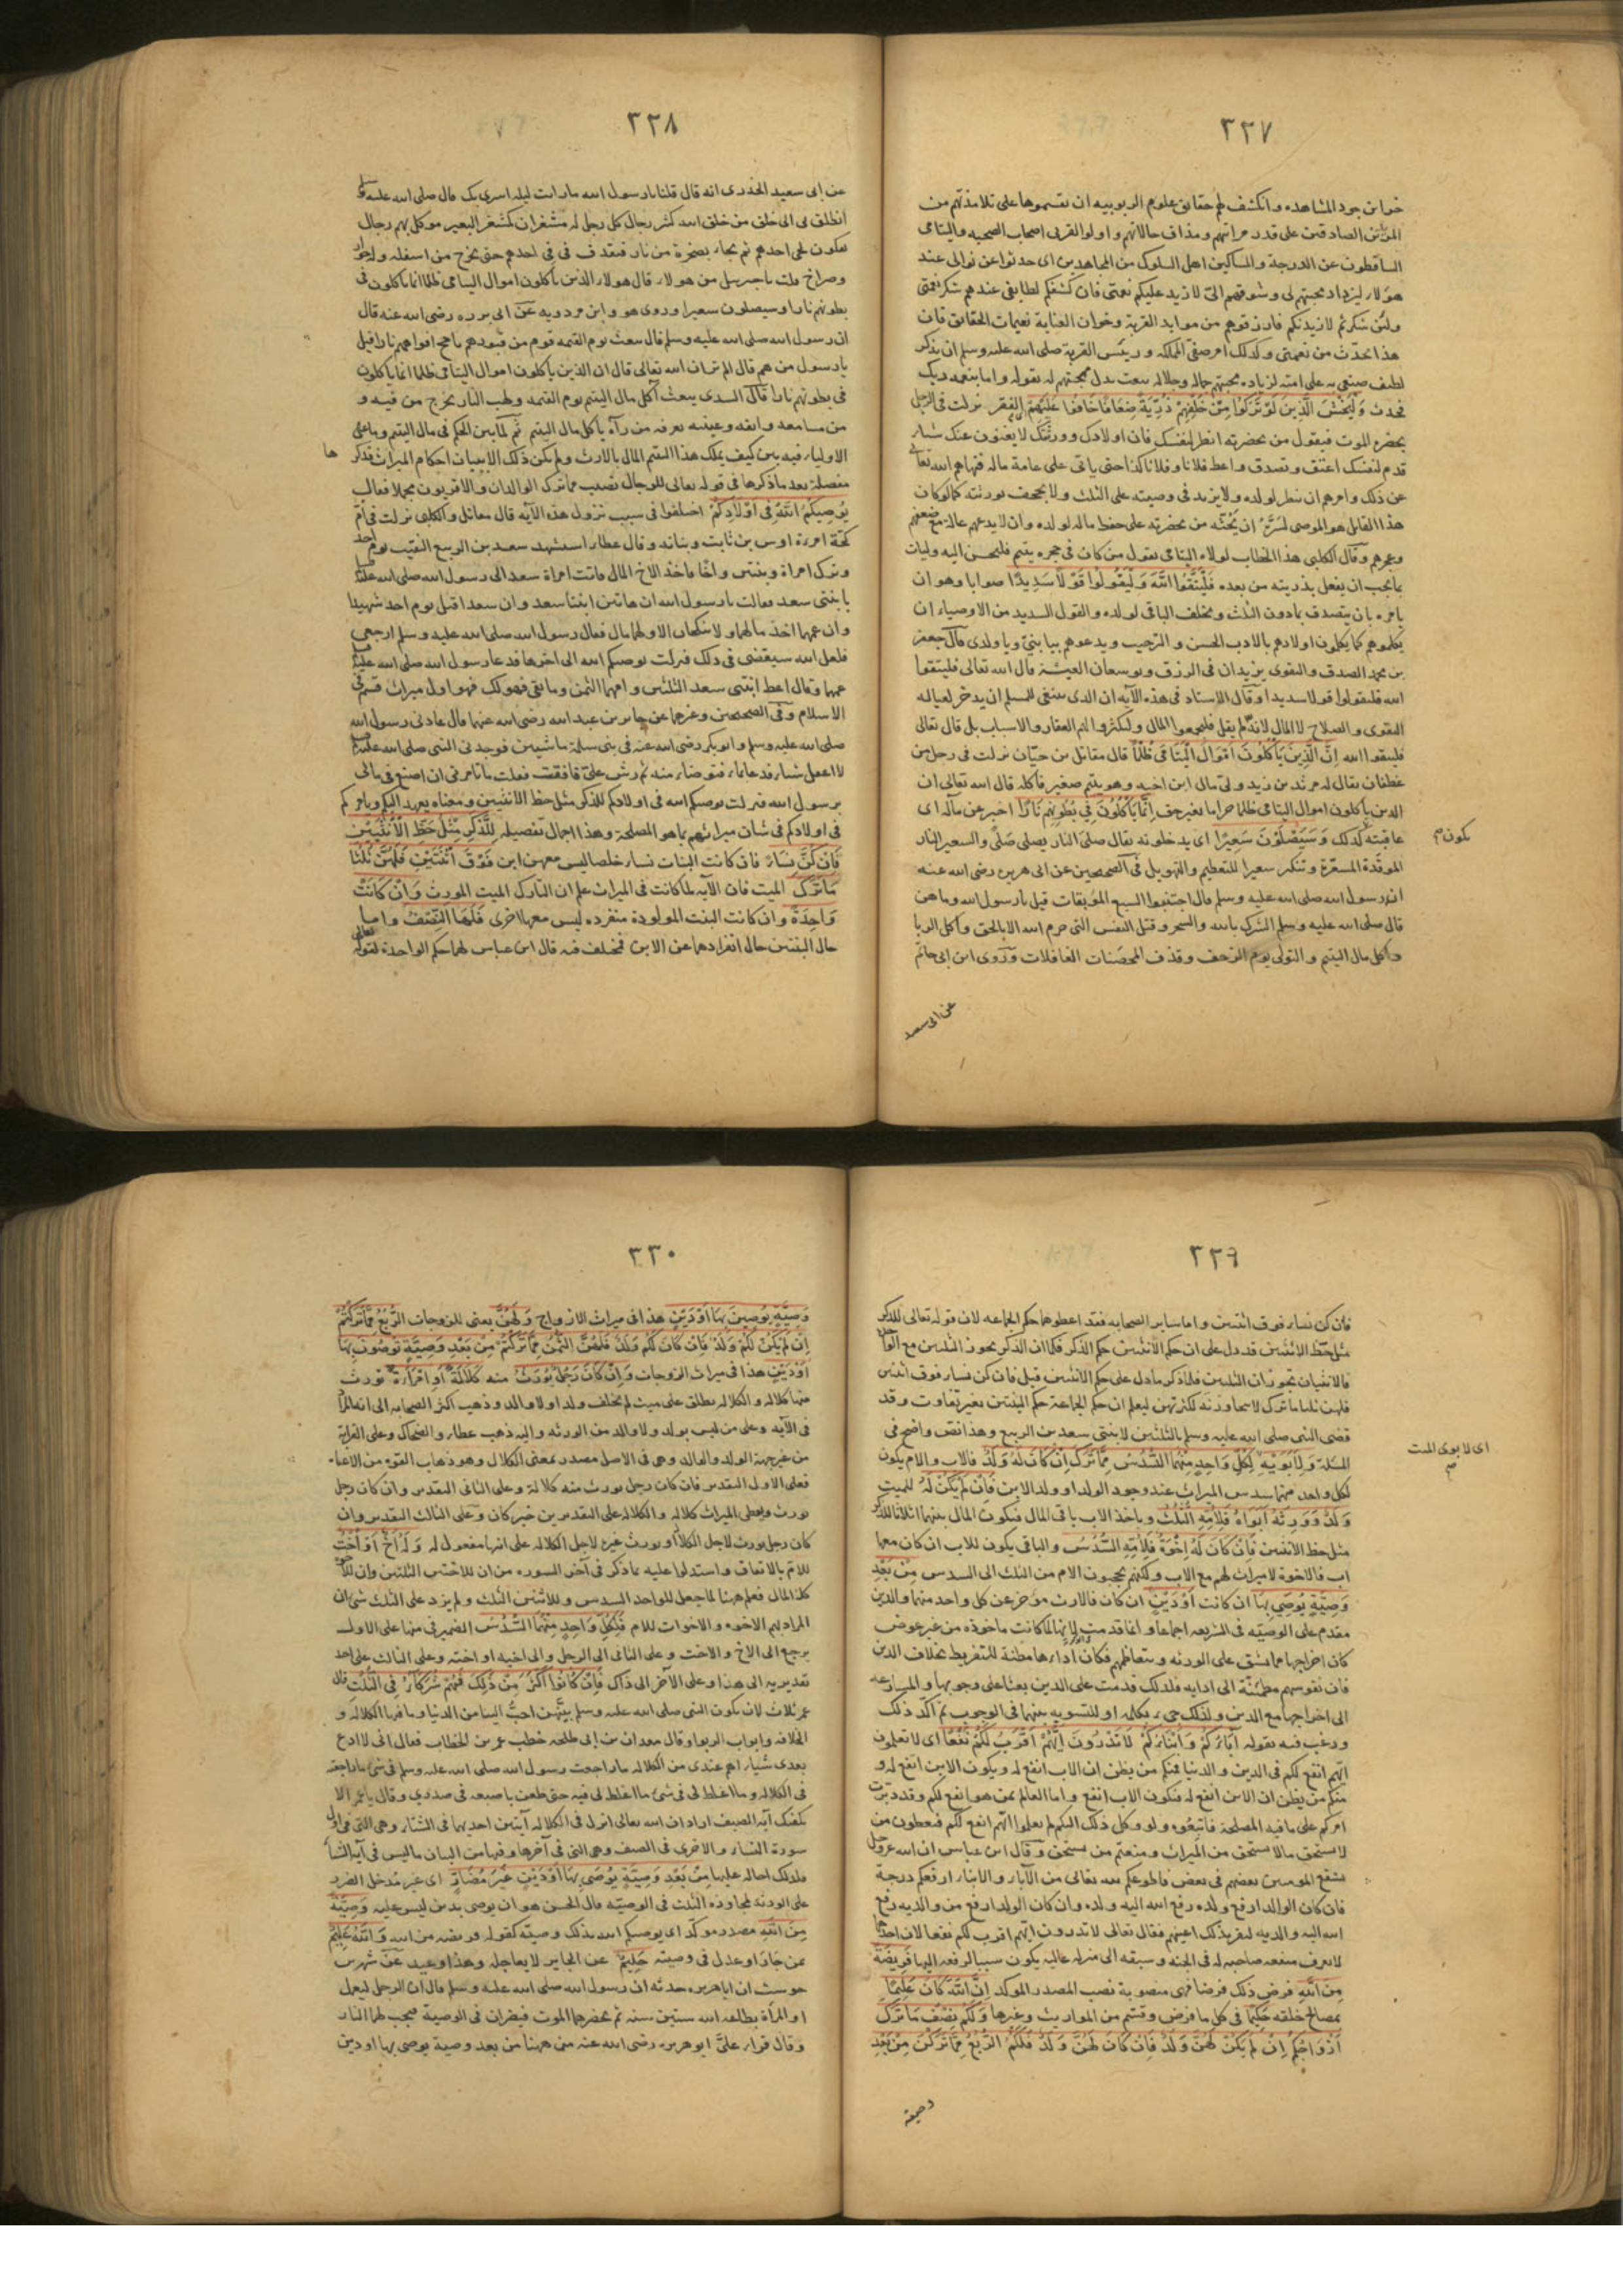 ٣٢٧
خوان جود المشاهده وانكشف لهم حقايق علوم الربوبيه ان يقسموها على تلامذتهم من
الصادقين على قدر مراتهم ومذاق حالاتهم واولو القربى اصحاب الصحبه واليتامى
الساقطون عن الدرجة والمساكين اهل السلوك من المجاهدين اى حدثوا عن نوالى عند
هؤلاء ليزداد محبتهم لى وشوقهم الىّ لازيد عليكم نعمتى فان كشفكم لطايفى عندهم شكر نعمتى
ولئن شكرتم لازيدنكم فارزقوهم من موايد القربة وخوان العناية نعيمات الحقائق فان
هذا تحدّث من نعمتى وكذلك امر صفىّ المملكه ورئيس القربة صلى الله عليه وسلم ان يذكر
لطيف صنعى به على امته لزياده محبتهم جماله وجلاله بقوله واما بنعمه ربك
فحدث وَلْيَخْشَ الَّذِينَ لَوْ تَرَكُوا مِنْ خَلْفِهِمْ ذُرِّيَّةً ضِعَافًا خَافُوا عَلَيْهِمْ الفقر نزلت فى الرجل
يحضره الموت فيقول من بحضرته انظر لنفسك فان اولادك وورثتك لا يغنون عنك شياء
قدم لنفسك اعتق وتصدق واعط فلانا وفلانا كذا حتى ياتى على عامة ماله فنهاهم الله تعالى
عن ذلك وامرهم ان ينظر لولده ولا يزيد فى وصيته على الثلث ولا يجحف بورثته كما لو كان
هذا القايل هو الموصى لسَرَّهُ ان يَحُثَّه من بحضرته على حفظ ماله لولده وان لا يدعهم عالة مع ضعفهم
وعجزهم وقال الكلبى هذا الخطاب لولاة اليتامى يقول من كان فى حجره يتيم فليحسن اليه وليات
بما يحب ان يفعل بذريته من بعده فَلْيَتَّقُوا اللَّهَ وَلْيَقُولُوا قَوْلًا سَدِيدًا صوابا وهو ان
يامره بان يتصدق بما دون الثلث ويخلف الباقى لولده والقول السديد من الاوصياء ان
يكلموهم كما يكلمون اولادهم بالادب الحسن والترحيب ويدعوهم بيا بنىّ ويا ولدى قال جعفر
بن محمد الصدق والتقوى يزيدان فى الرزق ويوسعان العيشة قال الله تعالى فليتقوا
الله فليقولوا قولا سديدا وقال الاستاد فى هذه الآيه ان الذى ينبغى للمسلم ان يدخر لعياله
التقوى والصلاح لا المال لانه لم يقل فليجمعوا المال وليكثروا لهم العقار والاسباب بل قال تعالى
فليتقوا الله إِنَّ الَّذِينَ يَأْكُلُونَ أَمْوَالَ الْيَتَامَى ظُلْمًا قال مقاتل بن حيّان نزلت فى رجل من
غطفان يقال له مرثد بن زيد ولى مال ابن اخيه وهو يتيم صغير فاكله قال الله تعالى ان
الذين ياكلون اموال اليتامى ظلما حراما بغير حق إِنَّمَا يَأْكُلُونَ فِي بُطُونِهِمْ نَارًا اخبر عن ماله اى
عاقبته كذلك وَسَيَصْلَوْنَ سَعِيرًا اى يدخلونه يقال صلىَ النار يصلى صلًى والسعير النار
يكون م
الموقدة المسعّرة وتنكير سعيرا للتعظيم والتهويل فى الصحيحين عن ابى هريره رضى الله عنه
ان رسول الله صلى الله عليه وسلم قال اجتنبوا السبع الموبقات قيل يا رسول الله وما هن
قال صلى الله عليه وسلم الشرك بالله والسحر وقتل النفس التى حرم الله الا بالحق واكل الربا
واكل مال اليتيم والتولى يوم الزحف وقذف المحصنات الغافلات وروى ابن ابى حاتم
عن ابى سعيد
٣٢٨
عن ابى سعيد الخدرى انه قال قلنا يا رسول الله ما رايت ليلة اسرى بك قال صلى الله عليه وسلم
انطلق بى الى خلق من خلق الله كثير رجال كل رجل له مشفران كمشفر البعير موكل بهم رجال
يفكون لحى احدهم ثم يجاء بصخرة من نار فيقذف فى فى احدهم حتى يخرج من اسفله
وصراخ قلت يا جبريل من هولاء قال هولاء الذين ياكلون اموال اليتامى ظلما انما ياكلون فى
بطونهم نارا وسيصلون سعيرا وروى هو وابن مردويه عن ابى برزه رضى الله عنه قال
ان رسول الله صلى الله عليه وسلم قال يبعث يوم القيمه قوم من قبورهم تاجج افواههم نارا قيل
يا رسول من هم قال الم تر ان الله تعالى قال ان الذين ياكلون اموال اليتامى ظلما انما ياكلون
فى بطونهم نارا قال السدى يبعث آكل مال اليتيم يوم القيمه ولهب النار يخرج من فيه و
من مسامعه وانفه وعينيه يعرفه من رآه ياكل مال اليتيم ثم لما بين الحكم فى مال اليتيم وما على
الاولياء فيه بين كيف يملك هذا اليتيم المال بالارث ولم يكن ذلك الا ببيان احكام الميراث فذكر
ها
مفصلة بعد ما ذكرها فى قوله تعالى للرجال نصيب مما ترك الوالدان والاقربون مجملا فقال
يُوصِيكُمُ اللَّهُ فِي أَوْلَادِكُمْ اختلفوا فى سبب نزول هذه الآيه قال مقاتل والكلبى نزلت فى ام
كحّة امرءة اوس بن ثابت وبناته وقال عطاء استشهد سعد بن الربيع النقيب يوم احد
وترك امراة وبنتين واخًا فاخذ الاخ المال فاتت امراة سعد الى رسول الله صلى الله عليه وسلم
بابنتى سعد فقالت يا رسول الله ان هاتين ابنتا سعد وان سعدا قتل يوم احد شهيدا
وان عمهما اخذ مالهما ولا تنكحان الا ولهما مال فقال رسول الله صلى الله عليه وسلم ارجعى
فلعل الله سيقضى فى ذلك فنزلت يوصيكم الله الى اخرها فدعا رسول الله صلى الله عليه وسلم
عمهما وقال اعط ابنتى سعد الثلثين وامهما الثمن وما بقى فهو لك فهو اول ميراث قسم فى
الاسلام وفى الصحيحين وغيرهما عن جابر بن عبد الله رضى الله عنهما قال عادنى رسول الله
صلى الله عليه وسلم وابو بكر رضى الله عنه فى بنى سلمة ماشيين فوجدنى النبى صلى الله عليه وسلم
لا اعقل شياء فدعا بماء فتوضاء منه ثم رش علىّ فافقت فقلت ما تامرنى ان اصنع فى مالى
يرسول الله فنزلت يوصيكم الله فى اولادكم للذكر مثل حظ الانثيين ومعناه يعهد اليكم ويامركم
فى اولادكم فى شان ميراثهم بما هو المصلحة وهذا اجمال تفصيله لِلذَّكَرِ مِثْلُ حَظِّ الْأُنْثَيَيْنِ
فَإِنْ كُنَّ نِسَاءً فان كانت البنات نساء خلصا ليس معهن ابن فَوْقَ اثْنَتَيْنِ فَلَهُنَّ ثُلُثَا
مَا تَرَكَ الميت فان الآيه لما كانت فى الميراث علم ان التارك الميت المورث وَإِنْ كَانَتْ
وَاحِدَةً وان كانت البنت المولودة منفرده ليس معها اخرى فَلَهَا النِّصْفُ واما
حال البنتين حال انفرادهما عن الابن فمختلف فيه قال ابن عباس لهما حكم الواحدة لقوله تعالى
٣٢٩
فان كن نساء فوق اثنتين واما ساير الصحابه فقد اعطوهما حكم الجماعه لان قوله تعالى للذكر
مثل حظ الانثيين قد دل على ان حكم الانثيين حكم الذكر فكما ان الذكر يحوز الثلثين مع الواحدة
فالانثيان تحوزان الثلثين فلما ذكر ما دل على حكم الانثيين قيل فان كن نساء فوق اثنتين
فلهن ثلثا ما ترك لا يتجاوزنه لكثرتهن ليعلم ان حكم الجماعة حكم البنتين بغير تفاوت وقد
قضى النبى صلى الله عليه وسلم بالثلثين لابنتى سعد بن الربيع وهذا نص واضح فى
المسئلة وَلِأَبَوَيْهِ لِكُلِّ وَاحِدٍ مِنْهُمَا السُّدُسُ مِمَّا تَرَكَ إِنْ كَانَ لَهُ وَلَدٌ فالاب والام يكون
اى لابوى الميت
لكل واحد منهما سدس الميراث عند وجود الولد او ولد الابن فَإِنْ لَمْ يَكُنْ لَهُ للميت
وَلَدٌ وَوَرِثَهُ أَبَوَاهُ فَلِأُمِّهِ الثُّلُثُ وياخذ الاب باقى المال فيكون المال بينهما اثلاثا للذكر
مثل حظ الانثيين فَإِنْ كَانَ لَهُ إِخْوَةٌ فَلِأُمِّهِ السُّدُسُ والباقى يكون للاب ان كان معها
اب فالاخوة لا ميراث لهم مع الاب ولكنهم يحجبون الام من الثلث الى السدس مِنْ بَعْدِ
وَصِيَّةٍ يُوصِي بِهَا ان كانت أَوْ دَيْنٍ ان كان فالارث مؤخر عن كل واحد منهما والدين
مقدم على الوصيّه فى الشريعه اجماعا وانما قدمت لانها لما كانت ماخوذه من غير عوض
كان اخراجها مما يشق على الورثه ويتعاظمهم فكان اداءها مظنة للتفريط بخلاف الدين
فان نفوسهم مطمئنة الى ادايه فلذلك قدمت على الدين بعثا على وجوبها والمسارعه
الى اخراجها مع الدين ولذلك جىء بكلمه او للتسويه بينهما فى الوجوب ثم اكّد ذلك
ورغب فيه بقوله آبَاؤُكُمْ وَأَبْنَاؤُكُمْ لَا تَدْرُونَ أَيُّهُمْ أَقْرَبُ لَكُمْ نَفْعًا اى لا تعلمون
ايّهم انفع لكم فى الدين والدنيا فمنكم من يظن ان الاب انفع له ويكون الابن انفع له و
منكم من يظن ان الابن انفع له فيكون الاب انفع وانا العالم بمن هو انفع لكم وقد دبرت
امركم على ما فيه المصلحة فاتبعوه ولو وكل ذلك اليكم لم تعلموا ايهم انفع لكم فتعطون من
لا يستحق ما لا يستحق من الميراث وتمنعون من يستحق وقال ابن عباس ان الله عز وجل
يشفع المومنين بعضهم فى بعض فاطوعكم لله تعالى من الآباء والابناء ارفعكم درجة
فان كان الوالد ارفع ولده رفع الله اليه ولده وان كان الولد ارفع من والديه رفع
الله اليه والديه لتقر بذلك اعينهم فقال تعالى لا تدرون ايهم اقرب لكم نفعا لان احدهما
لا يعرف منفعه صاحبه له فى الجنه وسبقه الى منزله عاليه يكون سببا لرفعه اليها فَرِيضَةً
مِنَ اللَّهِ فرض ذلك فرضا فهى منصوبة نصب المصدر الموكد إِنَّ اللَّهَ كَانَ عَلِيمًا
بمصالح خلقه حَكِيمًا فى كل ما فرض وقسّم من المواريث وغيرها وَلَكُمْ نِصْفُ مَا تَرَكَ
أَزْوَاجُكُمْ إِنْ لَمْ يَكُنْ لَهُنَّ وَلَدٌ فَإِنْ كَانَ لَهُنَّ وَلَدٌ فَلَكُمُ الرُّبُعُ مِمَّا تَرَكْنَ مِنْ بَعْدِ
وصية
٣٣٠
وَصِيَّةٍ يُوصِينَ بِهَا أَوْ دَيْنٍ هذا فى ميراث الازواج وَلَهُنَّ يعنى للزوجات الرُّبُعُ مِمَّا تَرَكْتُمْ
إِنْ لَمْ يَكُنْ لَكُمْ وَلَدٌ فَإِنْ كَانَ لَكُمْ وَلَدٌ فَلَهُنَّ الثُّمُنُ مِمَّا تَرَكْتُمْ مِنْ بَعْدِ وَصِيَّةٍ تُوصُونَ بِهَا
أَوْ دَيْنٍ هذا فى ميراث الزوجات وَإِنْ كَانَ رَجُلٌ يُورَثُ منه كَلَالَةً أَوِ امْرَأَةٌ تورث
منها كلاله والكلاله يطلق على ميت لم يخلف ولدا ولا والد وذهب اكثر الصحابه الى انه المراد
فى الآيه وعلى من ليس بولد ولا والد من الورثه واليه ذهب عطاء والضحاك وعلى القرابة
من غير جهة الولد والوالد وهى فى الاصل مصدر بمعنى الكلال وهو ذهاب القوة من الاعياء
فعلى الاول التقدير فان كان رجل يورث منه كلالة وعلى الثانى التقدير وان كان رجل
يورث ويعطى الميراث كلاله والكلاله على التقديرين خبر كان وعلى الثالث التقدير وان
كان رجل يورث لاجل الكلالة او يورث غيره لاجل الكلاله على انها مفعول له وَلَهُ أَخٌ أَوْ أُخْتٌ
للام بالاتفاق واستدلوا عليه بما ذكر فى آخر السوره من ان للاختين الثلثين وان للاخوة
كل المال فعلم ههنا لما جعل للواحد السدس وللاثنين الثلث ولم يزد على الثلث شىء ان
المراد بهم الاخوه والاخوات للام فَلِكُلِّ وَاحِدٍ مِنْهُمَا السُّدُسُ الضمير فى منهما على الاول
يرجع الى الاخ والاخت وعلى الثانى الى الرجل والى اخيه او اخته وعلى الثالث على احد
تقديريه الى هذا وعلى الآخر الى ذاك فَإِنْ كَانُوا أَكْثَرَ مِنْ ذَلِكَ فَهُمْ شُرَكَاءُ فِي الثُّلُثِ قال
عمر ثلاث لان يكون النبى صلى الله عليه وسلم بيّنهن احبّ الينا من الدنيا وما فيها الكلاله و
الخلافه وابواب الربوا وقال معدان بن ابى طلحه خطب عمر بن الخطاب فقال انى لا ادع
بعدى شياء اهم عندى من الكلاله ما راجعت رسول الله صلى الله عليه وسلم فى شىء ما راجعته
فى الكلاله وما اغلظ لى فى شىء ما اغلظ لى فيه حتى طعن باصبعه فى صدرى وقال يا عمر الا
يكفيك آية الصيف اراد ان الله تعالى انزل فى الكلاله آيتين احديهما فى الشتاء وهى التى فى اول
سورة النساء والاخرى فى الصيف وهى التى فى آخرها وفيها من البيان ما ليس فى آيه الشتاء
فلذلك احاله عليها مِنْ بَعْدِ وَصِيَّةٍ يُوصَى بِهَا أَوْ دَيْنٍ غَيْرَ مُضَارٍّ اى غير مدخل الضرر
على الورثه بمجاوزه الثلث فى الوصيّه قال الحسن هو ان يوصى بدين ليس عليه وَصِيَّةً
مِنَ اللَّهِ مصدر موكّد اى يوصيكم الله بذلك وصية كقوله فريضه من الله وَاللَّهُ عَلِيمٌ
بمن جار او عدل فى وصيته حَلِيمٌ عن الجاير لا يعاجله وهذا وعيد عن شهر بن
حوشب ان ابا هريره حدثه ان رسول الله صلى الله عليه وسلم قال ان الرجل ليعمل
او المرأة بطاعه الله ستين سنه ثم يحضرهما الموت فيضران فى الوصية فيجب لهما النار
وقال قراء علىّ ابو هريره رضى الله عنه من ههنا من بعد وصية يوصى بها او دين